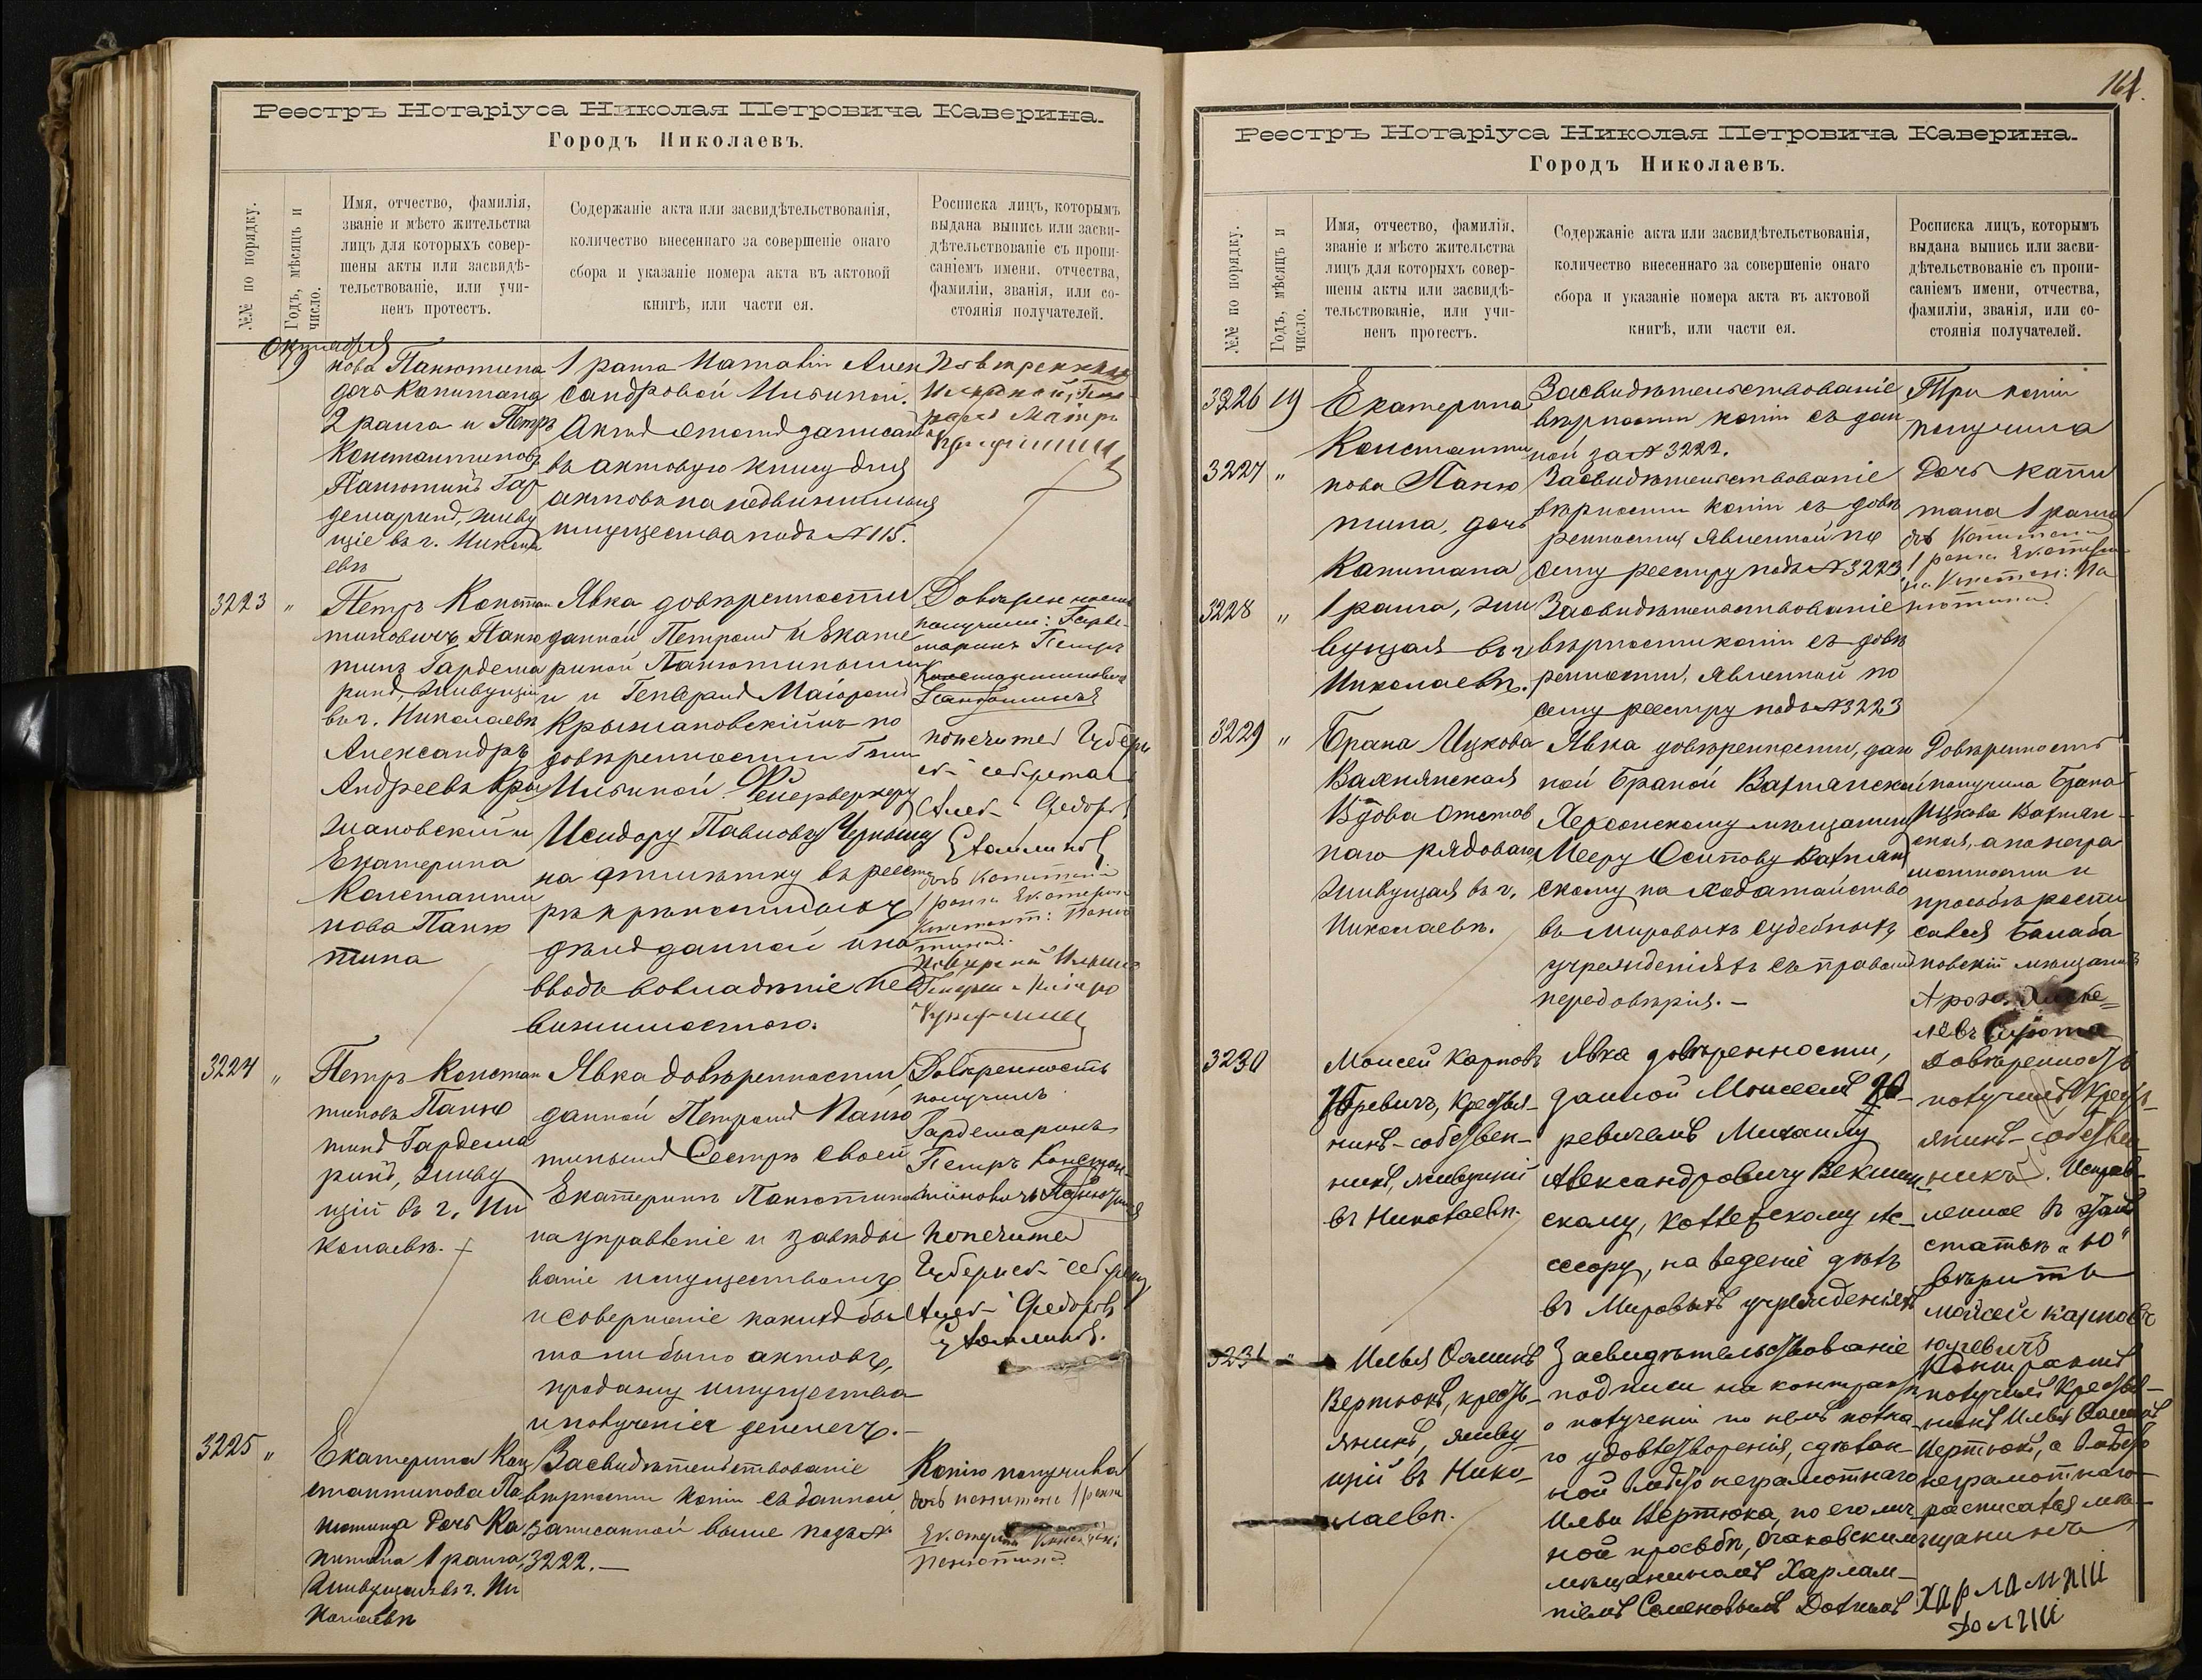 Реестръ Нотаріуса Николая Петровича Каверина.
Городъ Николаевъ.
№№ по порядку.
Годъ, мѣсяцъ и
число.
Имя, отчество, фамилія,
званіе и мѣсто жительства
лицъ для которыхъ совер-
шены акты или засвидѣ-
тельствованіе, или учи-
ненъ протестъ.
Содержаніе акта или засвидѣтельствованія,
количество внесеннаго за совершеніе онаго
сбора и указаніе номера акта въ актовой
книгѣ, или части ея.
Росписка лицъ, которымъ
выдана выпись или засви-
дѣтельствованіе съ пропи-
саніемъ имени, отчества,
фамиліи, званія, или со-
стоянія получателей.
Октября
19
нова Панютина
дочь Капитана
2 ранга и Петръ
Константиновъ
Панютинъ Гар
демаринъ, живу
щіе въ г. Никола
евѣ
1 ранга Наталіи Алек
сандровой Ильиной.
Актъ этотъ записанъ
въ актовую книгу для
актовъ на недвижимыя
имущества подъ № 115.
3223 "
Петръ Констан
тиновичъ Паню
тинъ Гардема
ринъ, живущій
въ г. Николаевѣ
Александръ
Андреевъ Кры
жановскій и
Екатерина
Константи
нова Паню
тина
Явка довѣренности
данной Петромъ и Екате
риной Панютиными
и Генералъ Маіоромъ
Крыжановскимъ по
довѣренности Г-жи
Ильиной Фейерверкеру
Исидору Павлову Черныму
на отмѣтку въ реест
рѣ крѣпостныхъ
дѣлъ данной и на
вводъ во владѣніе нед
вижимостью.
Довѣренность
получили: Гарде-
маринъ Петръ
Константиновичъ
Панютинъ
попечитель Губерн
ск. секретарь
Алек. Федоров
дочь Капитана
1 ранга Екатерина
Констант: Паню
тина.
3224 "
Петръ Констан
тиновъ Паню
тинъ Гардема
ринъ, живу
щій въ г. Ни
колаевѣ.
Явка довѣренности
данной Петромъ Паню
тинымъ Сестрѣ своей
Екатеринѣ Панютиной
на управленіе и завѣды
ваніе имуществомъ
и совершеніе какихъ бы
то ни было актовъ,
продажу имущества
и полученія денегъ.
Довѣренность
получилъ
Гардемаринъ
Петръ Констан-
тиновичъ Панютинъ
попечитель
Губернск. секретарь
Алек. Федоров
3225 "
Екатерина Кон
стантинова Па
нютина дочь Ка
питана 1 ранга,
живущая въ г. Ни
колаевѣ
Засвидѣтельствованіе
вѣрности копіи съ данной
записанной выше подъ №
3222.
Копію получила
дочь капитана 1 ранга
Екатерина
Панютина
164.
Реестръ Нотаріуса Николая Петровича Каверина.
Городъ Николаевъ.
№№ по порядку.
Годъ, мѣсяцъ и
число.
Имя, отчество, фамилія,
званіе и мѣсто жительства
лицъ для которыхъ совер-
шены акты или засвидѣ-
тельствованіе, или учи-
ненъ протестъ.
Содержаніе акта или засвидѣтельствованія,
количество внесеннаго за совершеніе онаго
сбора и указаніе номера акта въ актовой
книгѣ, или части ея.
Росписка лицъ, которымъ
выдана выпись или засви-
дѣтельствованіе съ пропи-
саніемъ имени, отчества,
фамиліи, званія, или со-
стоянія получателей.
3226 19
3227 "
3228 "
Екатерина
Константи
нова Паню
тина, дочь
Капитана
1 ранга, жи
вущая въ г
Николаевѣ.
Засвидѣтельствованіе
вѣрности копіи съ дан
ной за № 3222.
Засвидѣтельствованіе
вѣрности копіи съ довѣ
ренности явленной по
сему реестру подъ № 3223
Засвидѣтельствованіе
вѣрности копіи съ довѣ
ренности, явленной по
сему реестру подъ № 3223
Три копіи
получила
дочь капи
тана 1 ранга
дочь Капитана
1 ранга Екатери
на Констан: Па
нютина.
3229 "
Брана Ицкова
Вахнянская
Вдова отстав
наго рядоваго,
живущая въ г.
Николаевѣ.
Явка довѣренности, дан
ной Браной Вахнянской
Херсонскому мѣщанину
Мееру Осипову Вахнян
скому на ходатайство
въ мировыхъ судебныхъ
учрежденіяхъ съ правомъ
передовѣрія. —
Довѣренность
получила Брана
Ицкова Вахнян-
ская, а по негра
мотности и
просьбѣ роспи
сался Балаба
новскій мѣщанинъ
3230
Моисей Карповъ
Юревичъ, крестья-
нинъ-собствен-
никъ, живущій
въ Николаевѣ.
Явка довѣренности,
данной Моисеемъ Ю-
ревичемъ Михаилу
Александровичу
скому, Коллежскому Ас-
сесору, на веденіе дѣлъ
въ Мировыхъ учрежденіяхъ
Довѣренность
получилъ крестья-
янинъ-собствен
никъ. Исправ-
ленное въ этой
статьѣ "Ю"
вѣрить
мойсей карповъ
юревичъ
3231 "
Илья Ѳоминъ
Вертюкъ, кресть-
янинъ, живу-
щій въ Нико-
лаевѣ.
Засвидѣтельствованіе
подписи на контрактѣ
о полученіи по немъ полна-
го удовлетворенія, сдѣлан-
ной вмѣсто неграмотнаго
Ильи Вертюка, по его лич
ной просьбѣ, Очаковскимъ
мѣщаниномъ Харлам-
піемъ Семеновымъ
Контрактъ
получилъ кресть-
янинъ Илья Ѳоминъ
Вертюкъ, а вмѣсто
неграмотнаго
росписался мѣ-
щанинъ
Харлампій